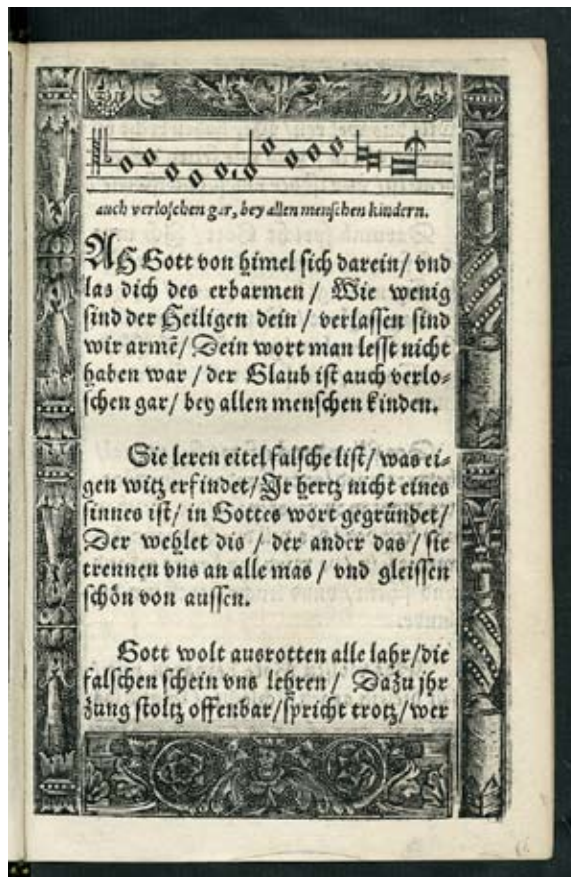 auch verloschen gar, bey allen menschen kindern.
ACH Gott von himel sich darein/ vnd
las dich des erbarmen / Wie wenig
sind der Heiligen dein / verlassen sind
wir armē/ Dein wort man lesst nicht
haben war / der Glaub ist auch verlo⸗
schen gar/ bey allen menschen kinden.
Sie leren eitel falsche list/ was ei⸗
gen witz erfindet/ Jr hertz nicht eines
sinnes ist/ in Gottes wort gegründet/
Der wehlet dis / der ander das / sie
trennen vns an alle mas / vnd gleissen
schön von aussen.
Gott wolt ausrotten alle lahr/die
falschen schein vns lehren / Dazu jhr
zung stoltz offenbar/spricht trotz/wer